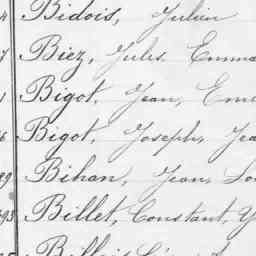 4 Bidois, Julien
7 Biez, Jules Emma
1 Bigot, Jean, Em
6 Bigot, Joseph, Jea
99 Bihan, Jean, Lo
93 Billet, Constant, Y
Billois